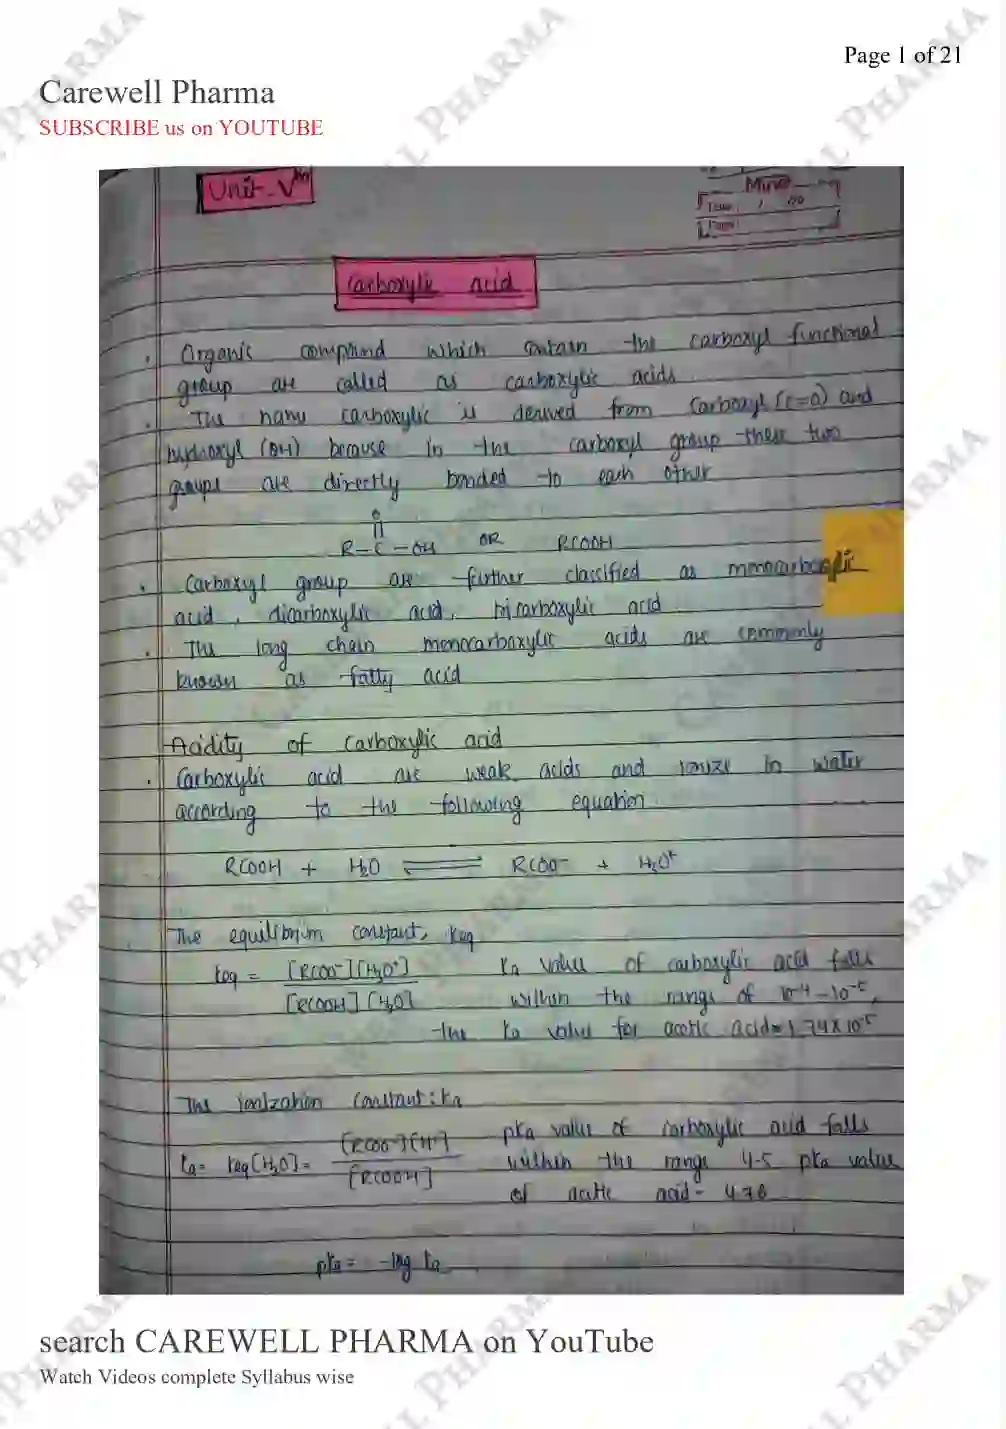 Page 1 of 21
Carewell Pharma
SUBSCRIBE us on YOUTUBE
Unit-Vth
Carboxylic acid
. Organic compound which contain the carboxyl functional
group are called as carboxylic acids
. The name carboxylic is derived from Carbonyl (C=O) and
hydroxyl (OH) because in the carboxyl group these two
groups are directly bonded to each other
O
R-C-OH OR RCOOH
. Carboxyl group are further classified as monocarboxylic
acid, dicarboxylic acid, tricarboxylic acid
. The long chain monocarboxylic acids are commonly
known as fatty acid
Acidity of carboxylic acid
. Carboxylic acid are weak acids and ionize in water
according to the following equation.
RCOOH + H₂O ⇌ RCOO⁻ + H₃O⁺
. The equilibrium constant, Keq
Keq = [RCOO⁻][H₃O⁺] / [RCOOH][H₂O]
Ka value of carboxylic acid falls
within the range of 10⁻⁴-10⁻⁵,
the Ka value for acetic acid = 1.74x10⁻⁵
The ionization constant: Ka
Ka = Keq[H₂O] = [RCOO⁻][H⁺] / [RCOOH]
pKa value of carboxylic acid falls
within the range 4-5 pKa value
of acetic acid - 4.76
pKa = -log Ka
search CAREWELL PHARMA on YouTube
Watch Videos complete Syllabus wise